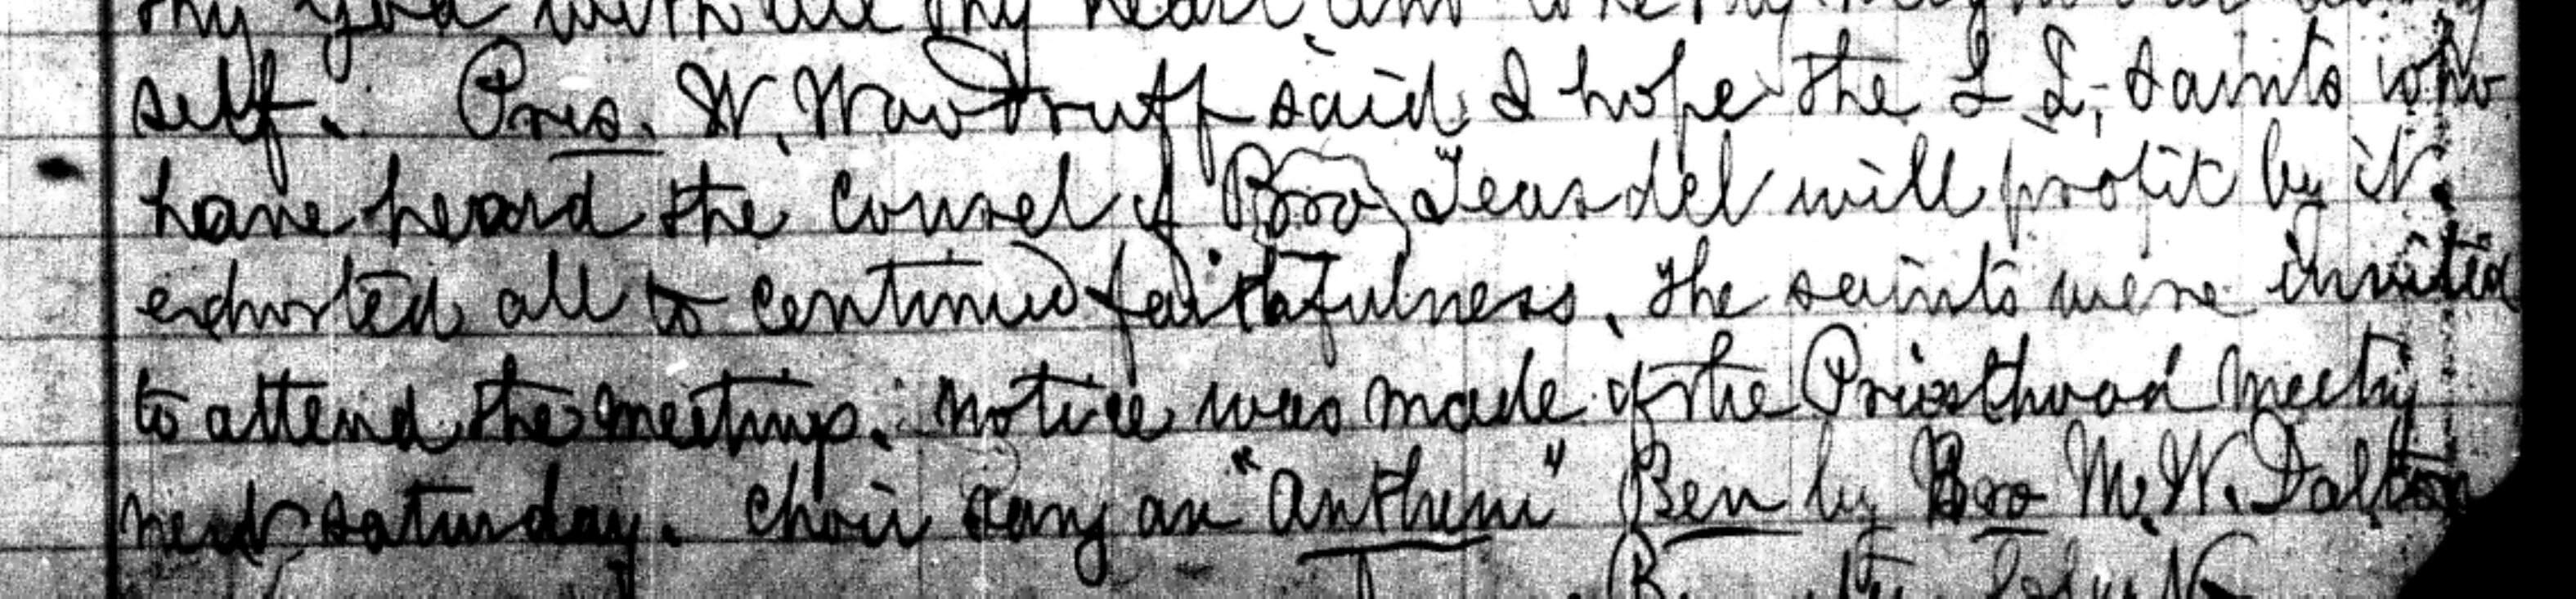 thy God with all thy heart and
self. Pres. W. Woodruff said I hope the L L, Saints who
have heard the counsel of Bro Teasdel will profit by it.
exhorted all to continued faithfulness, The saints were invited
to attend the meetings. Notice was made of the Priesthood meeting
next Saturday. Choir sang an "Anthem" Ben by Bro M. W. Dalton